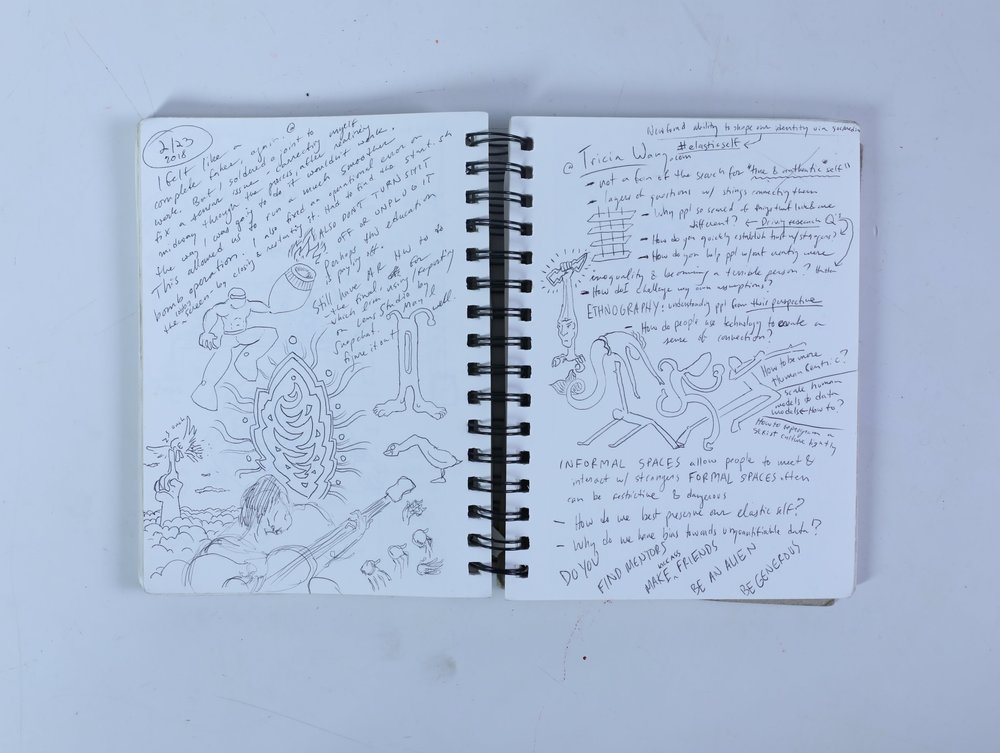 2/23
2018
@
I felt like a
complete faker, again @
work. But I soldered a joint to
fix a tensor issue, correcting myself
midway through the process, after realizing
the way I was going to do it wouldn't work.
This allowed us to run a much smoother
bomb operation. I also fixed an operational error on
the screen by closing & restarting it. Had to find the start.sh
ALSO DONT TURN SHIT
OFF OR UNPLUG IT
Perhaps this education
is paying off.
Still have AR HOW TO do
that final, for
which I'm using/repeating
on Lens Studio by
Snapchat. May I
figure it out well.
Newfound ability to shape our identity via
#elasticself
@ Tricia Wang.com
- not a fan of the search for "true & authentic self"
- layers of questions w/ strings connecting them
- Why ppl so scared of things that look & are
different? ← Driving research Q's
- How do you quickly establish trust w/ strangers?
- How do you help ppl w/out creating more
inequality & becoming a terrible person?
- How do I challenge my own assumptions?
ETHNOGRAPHY: understanding ppl from their perspective
- How do people use technology to create a
sense of connection?
How to be more
Human Centric?
scale human
models to data
models ← How to?
How to reprogram a
sexist culture
INFORMAL SPACES allow people to meet &
interact w/ strangers FORMAL SPACES often
can be restrictive & dangerous
- How do we best preserve our elastic self?
- Why do we have bias towards unquantifiable data!?
DO YOU
FIND MENTORS
MAKE FRIENDS
BE AN ALIEN
BE GENEROUS